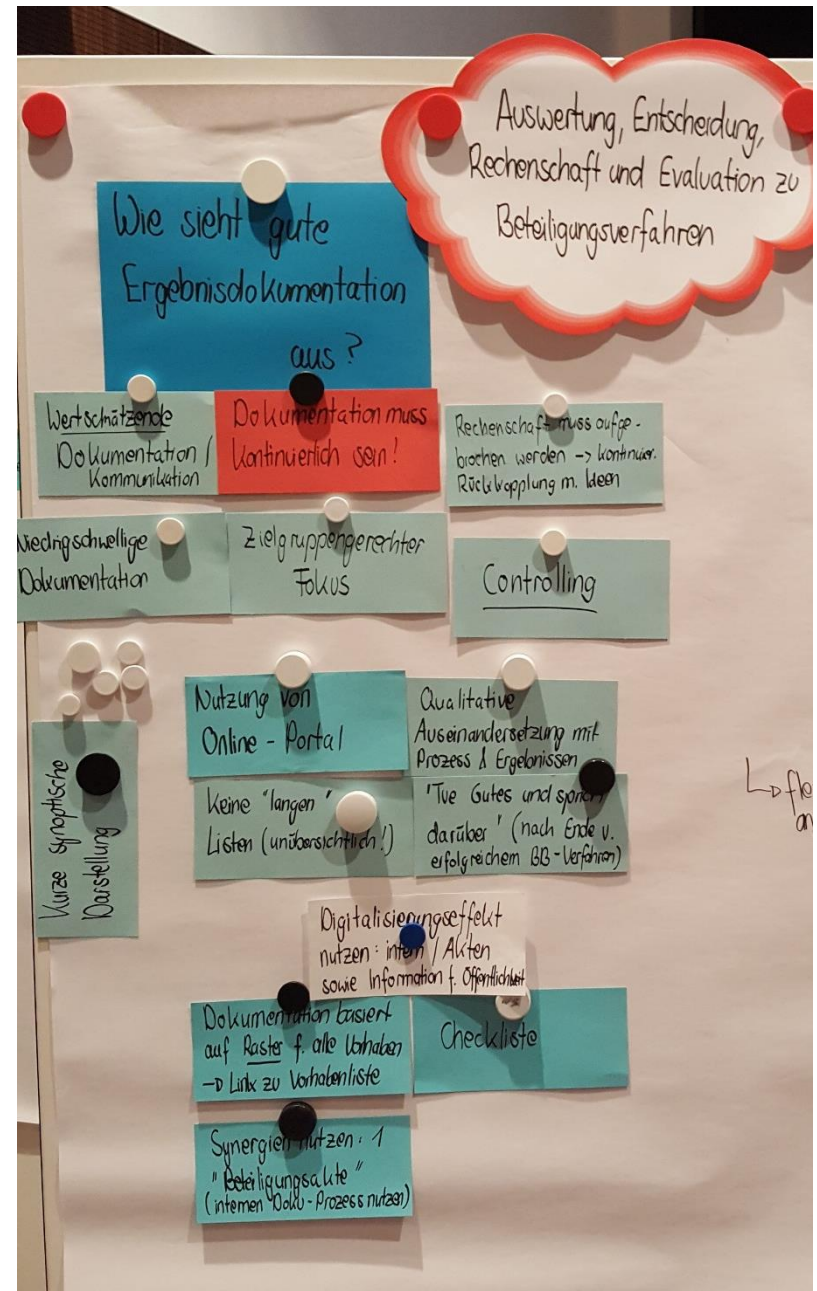 Auswertung, Entscheidung,
Rechenschaft und Evaluation zu
Beteiligungsverfahren
Wie sieht gute
Ergebnisdokumentation
aus?
Wertschätzende
Dokumentation /
Kommunikation
Dokumentation muss
kontinuierlich sein!
Rechenschaft muss aufge-
brochen werden -> kontinuier.
Rückkopplung m. Ideen
Niedrigschwellige
Dokumentation
Zielgruppengerechter
Fokus
Controlling
Kurze Synoptische
Darstellung
Nutzung von
Online-Portal
Qualitative
Auseinandersetzung mit
Prozess & Ergebnissen
Keine "langen"
Listen (unübersichtlich!)
"Tue Gutes und sprich
darüber" (nach Ende v.
erfolgreichem BB-Verfahren)
Digitalisierungseffekt
nutzen: intern / Akten
sowie Information f. Öffentlichkeit
Dokumentation basiert
auf Raster f. alle Vorhaben
-> Link zu Vorhabenliste
Checkliste
Synergien nutzen: 1
"Beteiligungsakte"
(internen Doku-Prozess nutzen)